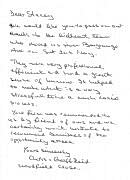 Dear Stacey
We would like you to pass on our
thanks to the Withers team
who moved us from Bungunyah
Ave on Sat 3rd July
They were very professional,
efficient and had a great
sense of humour. It helped
to make what is a very
stressful time a much easier
process.
You were recommended to
us by friend of ours and we
certainly won't hesitate to
recommend Withers if the
opportunity arises.
Yours Sincerely
Chris &